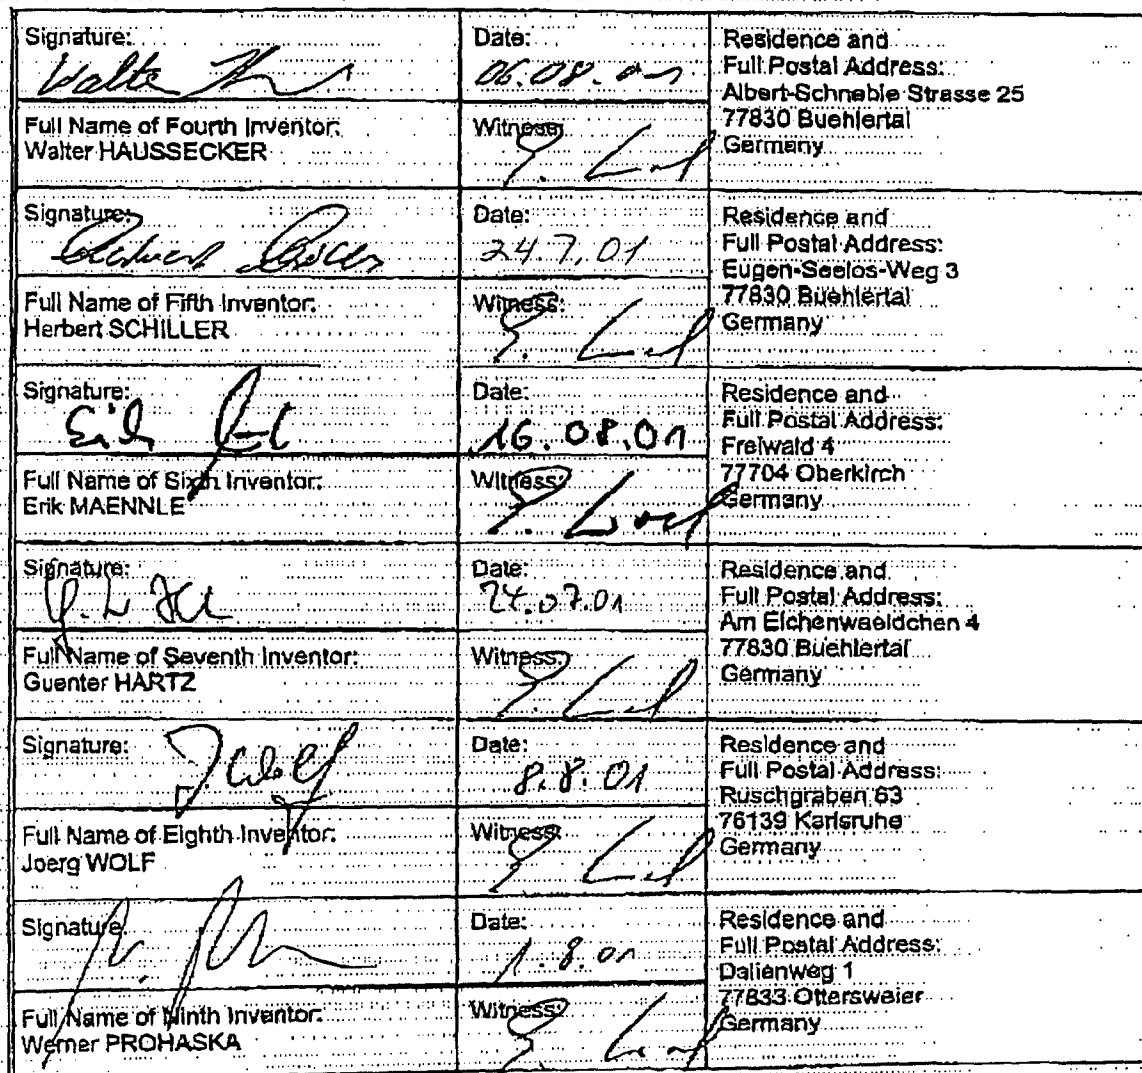 Signature:
Walter
Date:
06.08.01
Residence and
Full Postal Address:
Albert-Schneble Strasse 25
77830 Buehlertal
Germany
Full Name of Fourth Inventor:
Walter HAUSSECKER
Witness:
Signature:
Date:
24.7.01
Residence and
Full Postal Address:
Eugen-Seelos-Weg 3
77830 Buehlertal
Germany
Full Name of Fifth Inventor:
Herbert SCHILLER
Witness:
Signature:
Erik
Date:
16.08.01
Residence and
Full Postal Address:
Freiwald 4
77704 Oberkirch
Germany
Full Name of Sixth Inventor:
Erik MAENNLE
Witness:
Signature:
Date:
24.07.01
Residence and
Full Postal Address:
Am Eichenwaeldchen 4
77830 Buehlertal
Germany
Full Name of Seventh Inventor:
Guenter HARTZ
Witness:
Signature:
J Wolf
Date:
8.8.01
Residence and
Full Postal Address:
Ruschgraben 63
76139 Karlsruhe
Germany
Full Name of Eighth Inventor:
Joerg WOLF
Witness:
Signature:
Date:
1.8.01
Residence and
Full Postal Address:
Dalienweg 1
77833 Ottersweier
Germany
Full Name of Ninth Inventor:
Werner PROHASKA
Witness: